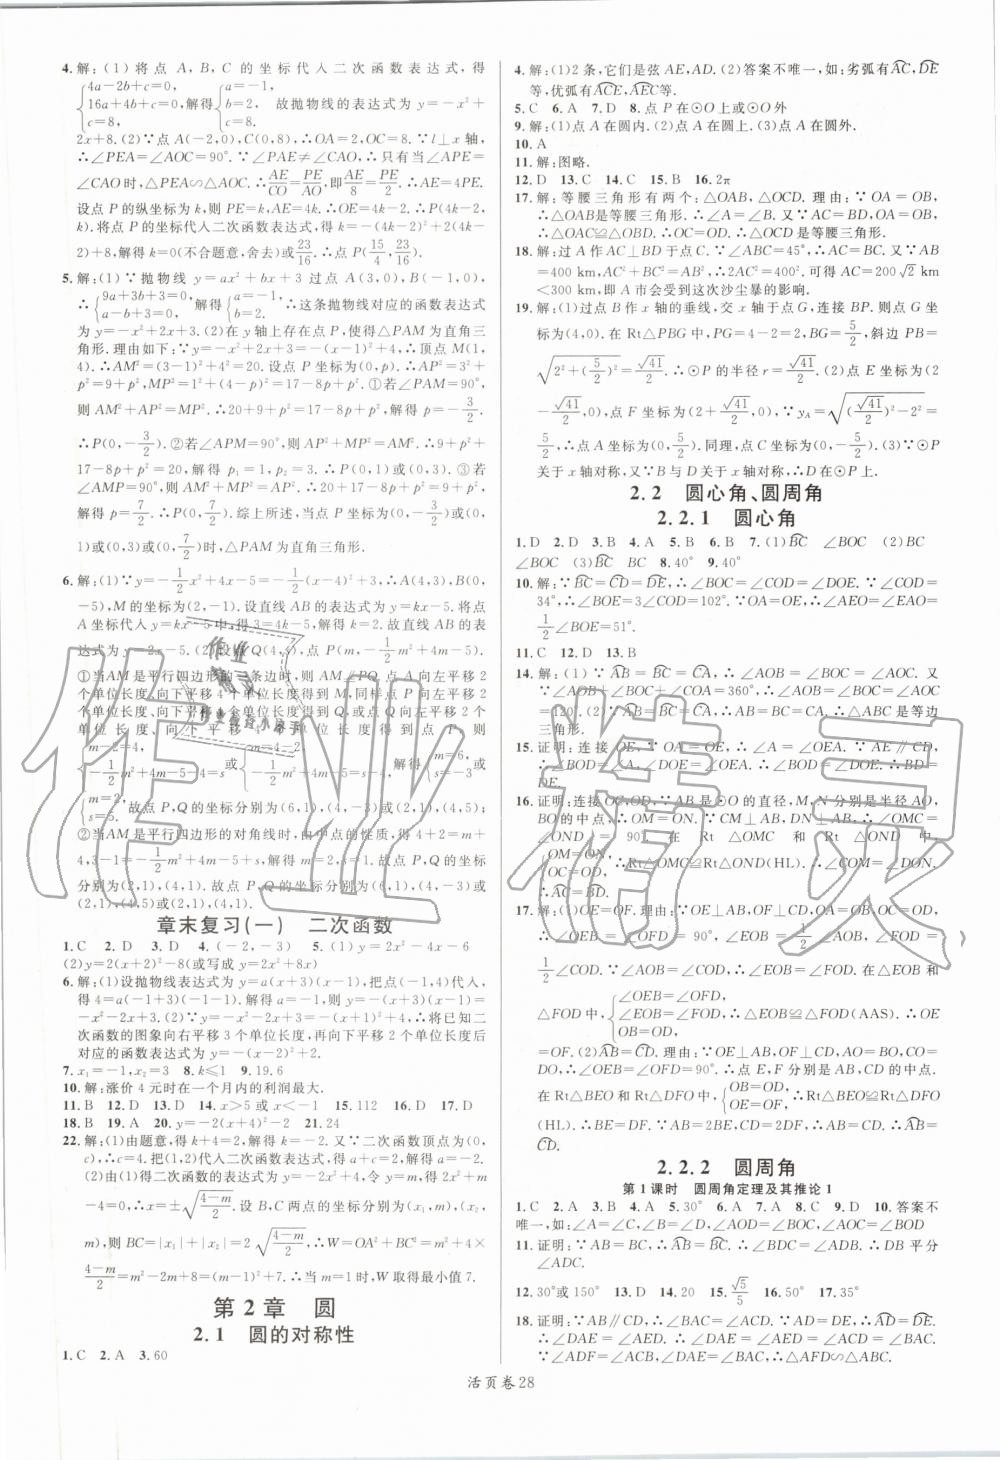 4.解:(1)将点 A,B,C 的坐标代入二次函数表达式,得
{4a-2b+c=0, 16a+4b+c=0, c=8. 解得{a=-1, b=2, c=8. 故抛物线的表达式为 y=-x²+
2x+8.(2)∵点 A(-2,0),C(0,8),∴OA=2,OC=8.∵l⊥x 轴,
∴∠PEA=∠AOC=90°.∵∠PAE≠∠CAO,∴只有当∠APE=
∠CAO时,△PEA∽△AOC.∴AE/CO=PE/AO,即AE/8=PE/2.∴AE=4PE.
设点 P 的纵坐标为 k,则 PE=k,AE=4k.∴OE=4k-2.∴P(4k-2,
k).将点 P 的坐标代入二次函数表达式,得-(4k-2)²+2(4k-2)
+8=k.解得 k=0(不合题意,舍去)或23/16.∴点 P(15/4,23/16).
5.解:(1)∵抛物线 y=ax²+bx+3 过点 A(3,0),B(-1,0),
∴{9a+3b+3=0, a-b+3=0. 解得{a=-1, b=2. ∴这条抛物线对应的函数表达式
为 y=-x²+2x+3.(2)在 y 轴上存在点 P,使得△PAM 为直角三
角形.理由如下:∵y=-x²+2x+3=-(x-1)²+4,∴顶点 M(1,
4).∴AM²=(3-1)²+4²=20.设点 P 坐标为(0,p),∴AP²=3²+
p²=9+p²,MP²=1²+(4-p)²=17-8p+p².①若∠PAM=90°,
则 AM²+AP²=MP².∴20+9+p²=17-8p+p²,解得 p=-3/2.
∴P(0,-3/2).②若∠APM=90°,则 AP²+MP²=AM².∴9+p²+
17-8p+p²=20,解得 p₁=1,p₂=3.∴P(0,1)或(0,3).③若
∠AMP=90°,则 AM²+MP²=AP².∴20+17-8p+p²=9+p²,
解得 p=7/2.∴P(0,7/2).综上所述,当点 P 坐标为(0,-3/2)或(0,
1)或(0,3)或(0,7/2)时,△PAM 为直角三角形.
6.解:(1)∵y=-1/2x²+4x-5=-1/2(x-4)²+3,∴A(4,3),B(0,
-5),M的坐标为(2,-1).设直线 AB 的表达式为 y=kx-5,将点
A 坐标代入 y=kx-5中,得3=4k-5.解得 k=2.故直线 AB 的表达
式为 y=2x-5.(2)设点 Q(4,s),点 P(m,-1/2m²+4m-5).
①当AM是平行四边形的一条边时,则 AM∥PQ,点 A 向左平移2
个单位长度,向下平移4个单位长度得到 M,同样点 P 向左平移2
个单位长度,向下平移4个单位长度得到Q,或点Q向左平移2
个单位长度,向下平移4个单位长度得到点 P,则
{m-2=4, -1/2m²+4m-5-4=s 或{m=4-2, -1/2m²+4m-5=s-4. 解得{m=6, s=-3 或
{m=2, s=5. 故点 P,Q 的坐标分别为(6,1),(4,-3)或(2,1),(4,5);
②当AM是平行四边形的对角线时,由中点的性质,得 4+2=m+
4,3-1=-1/2m²+4m-5+s,解得 m=2,s=1.故点 P,Q 的坐标
分别为(2,1),(4,1).故点 P,Q 的坐标分别为(6,1),(4,-3)或
(2,1),(4,5)或(2,1),(4,1).
章末复习(一) 二次函数
1.C 2.D 3.D 4.(-2,-3) 5.(1)y=2x²-4x-6
(2)y=2(x-2)²-8(或写成 y=2x²-8x)
6.解:(1)设抛物线表达式为 y=a(x+3)(x-1),把点(-1,4)代入,
得4=a(-1+3)(-1-1).解得 a=-1.∴y=-(x+3)(x-1)=
-x²-2x+3.(2)∵y=-x²-2x+3=-(x+1)²+4,∴将已知二
次函数的图象向右平移3个单位长度,再向下平移2个单位长度后
对应的函数表达式为 y=-(x-2)²+2.
7.x₁=-1,x₂=3 8.k≤1 9.19.6
10.解:涨价4元时在一个月内的利润最大.
11.B 12.D 13.D 14.x>5 或 x<-1 15.112 16.D 17.D
18.B 19.A 20.y=-2(x+4)²-2 21.24
22.解:(1)由题意,得 k+4=2.解得 k=-2.又∵二次函数顶点为(0,
c),∴c=4.把(1,2)代入二次函数表达式,得 a+c=2,解得 a=-2.
(2)由(1)得二次函数表达式为 y=-2x²+4,令 y=m,得 2x²+m-
4=0.∴x=±√(4-m)/2.设 B,C 两点的坐标分别为(x₁,m),(x₂,
m),则 BC=|x₁|+|x₂|=2√(4-m)/2.∴W=OA²+BC²=m²+4×
(4-m)/2=m²-2m+8=(m-1)²+7.∴当 m=1时,W 取得最小值7.
第2章 圆
2.1 圆的对称性
1.C 2.A 3.60
4.解:(1)2条,它们是弦AE,AD.(2)答案不唯一,如:劣弧有AC,DE
等,优弧有ACE,AEC等.
5.C 6.A 7.D 8.点 P 在⊙O 上或⊙O 外
9.解:(1)点 A 在圆内.(2)点 A 在圆上.(3)点 A 在圆外.
10.A
11.解:图略.
12.D 13.C 14.C 15.B 16.2π
17.解:等腰三角形有两个:△OAB,△OCD.理由:∵OA=OB,
∴△OAB是等腰三角形.∴∠A=∠B.又∵AC=BD,OA=OB,
∴△OAC≌△OBD.∴OC=OD.∴△OCD是等腰三角形.
18.解:过 A 作 AC⊥BD 于点 C.∵∠ABC=45°,∴AC=BC.又∵AB
=400 km,AC²+BC²=AB²,∴2AC²=400².可得 AC=200√2 km
<300 km,即 A 市会受到这次沙尘暴的影响.
19.解:(1)过点 B 作 x 轴的垂线,交 x 轴于点 G,连接 BP.则点 G 坐
标为(4,0).在 Rt△PBG 中,PG=4-2=2,BG=5/2,斜边 PB=
√(2²+(5/2)²)=√41/2.∴⊙P 的半径 r=√41/2.(2)点 E 坐标为(2
-√41/2,0),点 F 坐标为(2+√41/2,0).∵yA=√((√41/2)²-2²)=
5/2,∴点 A 坐标为(0,5/2).同理,点 C 坐标为(0,-5/2).(3)∵⊙P
关于 x 轴对称,又∵B 与 D 关于 x 轴对称,∴D在⊙P上.
2.2 圆心角、圆周角
2.2.1 圆心角
1.D 2.D 3.B 4.A 5.B 6.B 7.(1)BC ∠BOC (2)BC
∠BOC (3)BC BC 8.40° 9.40°
10.解:∵BC=CD=DE,∴∠BOC=∠COD=∠DOE.∵∠COD=
34°,∴∠BOE=3∠COD=102°.∵OA=OE,∴∠AEO=∠EAO=
1/2∠BOE=51°.
11.D 12.D 13.B
14.解:(1)∵AB=BC=CA,∴∠AOB=∠BOC=∠AOC.又
∵∠AOB+∠BOC+∠COA=360°,∴∠AOB=∠BOC=∠AOC
=120°.(2)∵AB=BC=CA,∴AB=BC=CA.∴△ABC是等边
三角形.
15.证明:连接OE,∵OE=OA,∴∠A=∠OEA.又∵AE∥CD,
∴∠BOD=∠A,∠DOE=∠OEA.∴∠BOD=∠DOE.∴BD
=DE.
16.证明:连接OC,OD,∵AB是⊙O的直径,M,N分别是半径AO,
BO的中点,∴OM=ON.∵CM⊥AB,DN⊥AB,∴∠OMC=
∠OND=90°.在Rt△OMC和Rt△OND中,
{OM=ON, OC=OD, ∴Rt△OMC≌Rt△OND(HL).∴∠AOC=∠BOD.
∴AC=BD.
17.解:(1)OE=OF.理由:∵OE⊥AB,OF⊥CD,OA=OB,OC=OD,
∴∠OEB=∠OFD=90°,∠EOB=1/2∠AOB,∠FOD=
1/2∠COD.∵∠AOB=∠COD,∴∠EOB=∠FOD.在△EOB 和
△FOD中,{∠OEB=∠OFD, ∠EOB=∠FOD, OB=OD, ∴△EOB≌△FOD(AAS).∴OE
=OF.(2)AB=CD.理由:∵OE⊥AB,OF⊥CD,AO=OC=OB=
OD,∴∠OEB=∠OFD=90°.∴点 E,F 分别是 AB,CD 的中点.
在 Rt△BEO 和 Rt△DFO 中,{OB=OD, OE=OF, ∴Rt△BEO≌Rt△DFO
(HL).∴BE=DF.∴AB=CD.∴∠AOB=∠COD.∴AB=
CD.
2.2.2 圆周角
第1课时 圆周角定理及其推论1
1.C 2.A 3.B 4.A 5.30° 6.A 7.A 8.C 9.D 10.答案不
唯一,如:∠A=∠C,∠B=∠D,∠AOD=∠BOC,∠AOC=∠BOD
11.证明:∵AB=BC,∴AB=BC.∴∠BDC=∠ADB.∴DB 平分
∠ADC.
12.30°或150° 13.D 14.20 15.√5/5 16.50° 17.35°
18.证明:∵AB∥CD,∴∠BAC=∠ACD.∵AD=AD,∴∠ACD=
∠AED.∴∠BAC=∠AED.∵AD=AE,∴∠ADE=∠AED.
∴∠ADF=∠ACF=∠BAC.∴△AFD∽△CAB.
活页卷28
作业精灵